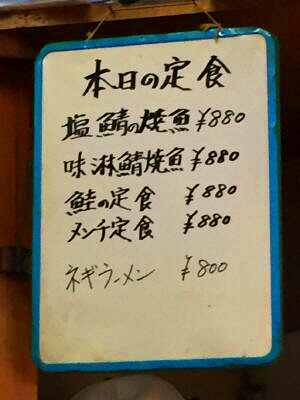 本日の定食
塩鯖の焼魚 ¥880
味淋鯖焼魚 ¥880
鮭の定食 ¥880
メンチ定食 ¥880
ネギラーメン ¥800